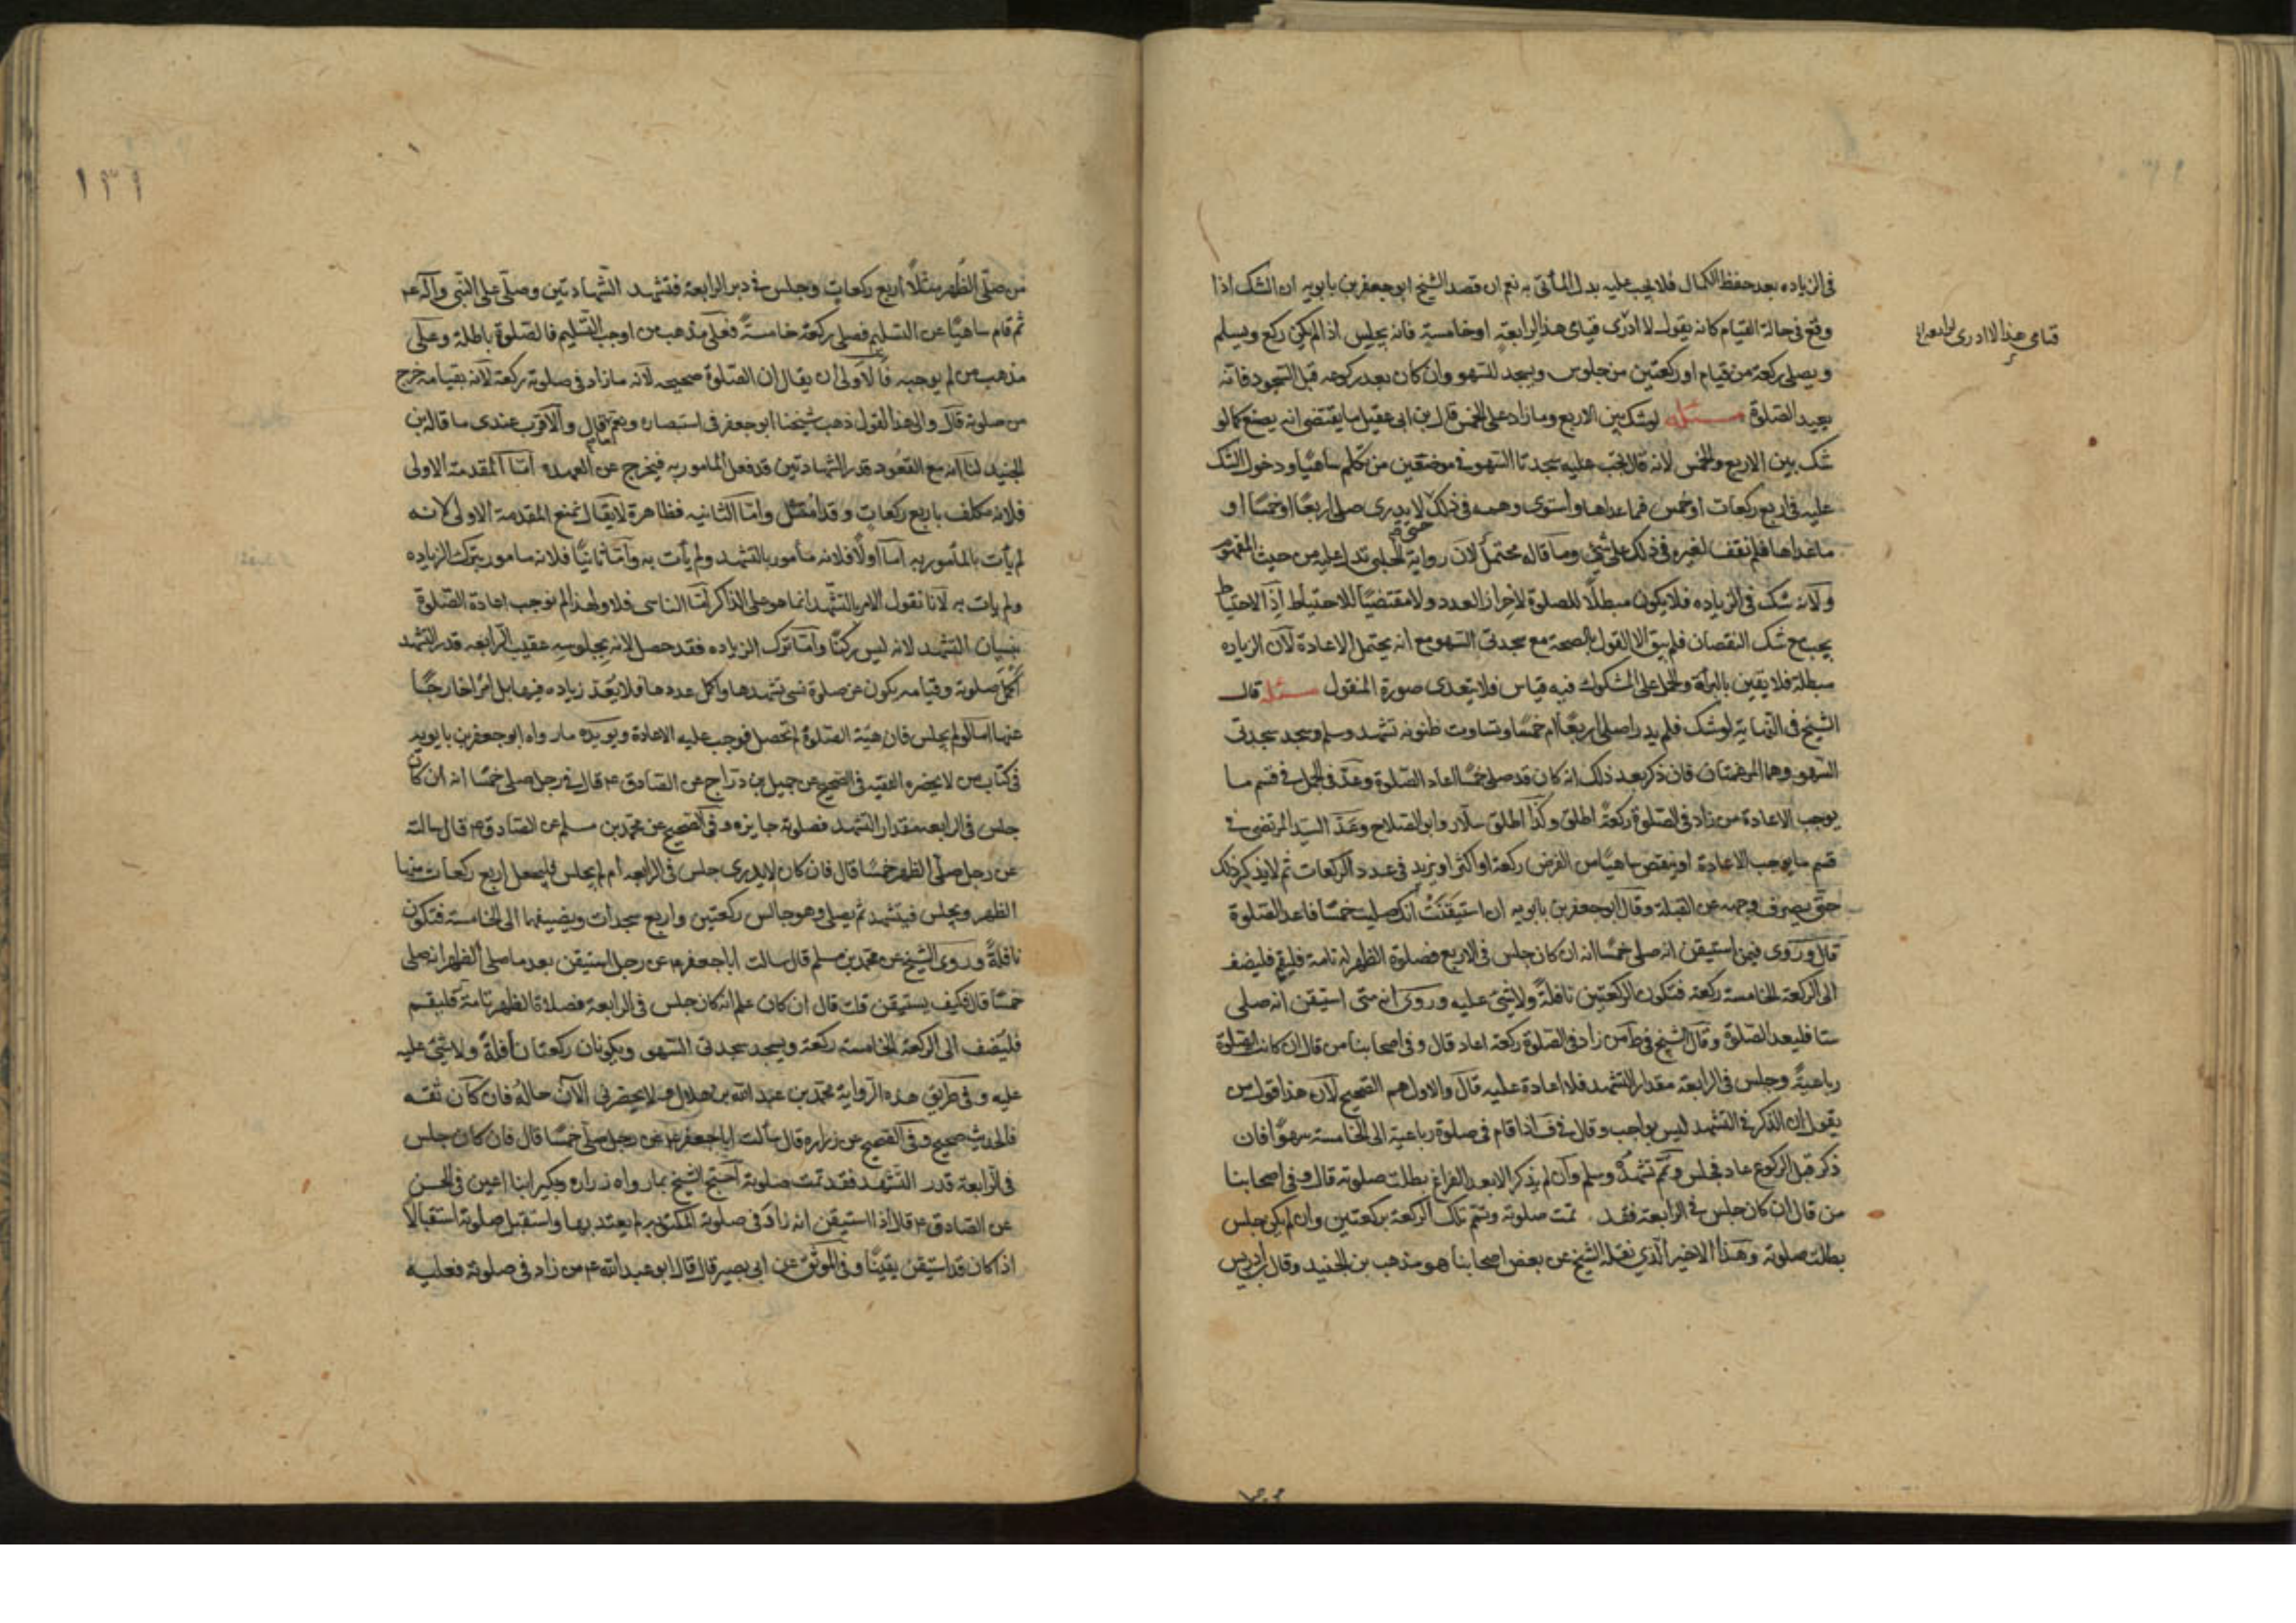 في الزياده بعد حفظ الكمال فلا يجب عليه بدل المأتى به نعم ان قصد الشيخ ابو جعفر بن بابويه ان الشك اذا
وقع في حالة القيام كانه يقول لا ادرى قيامى هذا لرابعة او خامسة فانه يجلس اذا لم يكن ركع ويسلم
قيامى هذا لا ادرى لرابعة
ويصلى ركعة من قيام او ركعتين من جلوس ويسجد للسهو وان كان بعد ركوعه قبل السجود فانه
يعيد الصلوة مسئله لو شك بين الاربع وما زاد على الخمس قال بن ابى عقيل ما يقتضى انه يصنع كما لو
شك بين الاربع والخمس لانه قال تجب عليه سجدتا السهو في موضعين من تكلم ساهيًا ودخول الشك
عليه في اربع ركعات او خمس فما عداها واستوى وهمه في ذلك حتى لا يدرى صلى اربعًا او خمسًا او
ما عداها فلم نقف لغيره في ذلك على شئ وما قاله محتمل لان رواية الحلبى تدل عليه من حيث المفهوم
ولانه شك في الزياده فلا يكون مبطلًا للصلوة لاحراز العدد ولا مقتضيًا للاحتياط اذ الاحتياط
يجب مع شك النقصان فلم يبق الا القول بالصحة مع سجدتى السهو مع انه يحتمل الاعادة لان الزياده
مبطلة فلا يقين بالبرأة والحمل على المشكوك فيه قياس فلا يتعدى صورة المنقول مسئله قال
الشيخ في النهاية لو شك فلم يدر اصلى اربعًا ام خمسًا وتساوت ظنونه تشهد وسلم وسجد سجدتى
السهو وهما المرغمتان فان ذكر بعد ذلك انه كان قد صلى خمسًا اعاد الصلوة وعدّ في الجمل في قسم ما
يوجب الاعادة من زاد في الصلوة ركعة اطلق وكذا اطلق سلار وابو الصلاح وعدّ السيد المرتضى في
قسم ما يوجب الاعادة او ينقص ساهيًا من الفرض ركعة او اكثر او يزيد في عدد الركعات ثم لا يذكر ذلك
حتى يصرف وجهه عن القبلة وقال ابو جعفر بن بابويه ان استيقنت انك صليت خمسًا فاعد الصلوة
قال وروى فيمن استيقن انه صلى خمسًا انه ان كان جلس في الاربع فصلوة الظهر له تامة فليقم فليضف
الى الركعة الخامسة ركعة فتكون الركعتين نافلةً ولا شئ عليه وروى انه متى استيقن انه صلى
ستا فليعد الصلوة وقال الشيخ في ط من زاد في الصلوة ركعة اعاد قال وفي اصحابنا من قال ان كانت الصلوة
رباعيةً وجلس في الرابعة مقدار التشهد فلا اعادة عليه قال والاول هم الصحيح لان هذا قول من
يقول ان الذكر في التشهد ليس بواجب وقال في ف اذا قام في صلوة رباعية الى الخامسة سهوًا فان
ذكر قبل الركوع عاد فجلس وتمم تشهده وسلم وان لم يذكر الا بعد الفراغ بطلت صلوته قال وفي اصحابنا
من قال ان كان جلس في الرابعة فقد تمت صلوته وتتم تلك الركعة بركعتين وان لم يكن جلس
بطلت صلوته وهذا الاخير الذي نقله الشيخ عن بعض اصحابنا هو مذهب بن الجنيد وقال ابن ادريس
١٣١
من صلى الظهر مثلًا اربع ركعات وجلس في دبر الرابعة فتشهد الشهادتين وصلى على النبى وآله ع
ثم قام ساهيًا عن التسليم فصلى ركعة خامسةً فعلى مذهب من اوجب التسليم فالصلوة باطلة وعلى
مذهب من لم يوجبه فالاولى ان يقال ان الصلوة صحيحه لانه ما زاد في صلوته ركعة لانه بقيامه خرج
من صلوته قال والى هذا القول ذهب شيخنا ابو جعفر في استبصاره ونعم ما قال والاقرب عندى ما قاله بن
الجنيد لنا انه مع القعود قدر الشهادتين قد فعل المامور به فيخرج عن العهده اما المقدمة الاولى
فلانه مكلف باربع ركعات وقد امتثل واما الثانيه فظاهرة لا يقال نمنع المقدمة الاولى لانه
لم يأت بالمأمور به اما اولًا فلانه مأمور بالتشهد ولم يأت به واما ثانيًا فلانه مامور بترك الزياده
ولم يات به لانا نقول الامر بالتشهد انما هو على الذاكر اما الناسى فلا ولهذا لم نوجب اعادة الصلوة
بنسيان التشهد لانه ليس ركنًا واما ترك الزياده فقد حصل لانه بجلوسه عقيب الرابعه قدر التشهد
اكمل صلوته وقيامه يكون عن صلوة نسى تشهدها واكمل عددها فلا يعدّ زياده فيها بل امرًا خارجًا
عنها اما لو لم يجلس فان هيئة الصلوة لم تحصل فوجب عليه الاعادة ويويده ما رواه ابو جعفر بن بابويه
في كتاب من لا يحضره الفقيه في الصحيح عن جميل بن دراج عن الصادق ع قال في رجل صلى خمسًا انه ان كان
جلس في الرابعه مقدار التشهد فصلوته جايزه وفي الصحيح عن محمد بن مسلم عن الصادق ع قال سالته
عن رجل صلى الظهر خمسًا قال فان كان لا يدرى جلس في الرابعه ام لم يجلس فليجعل اربع ركعات منها
الظهر ويجلس فيتشهد ثم يصلى وهو جالس ركعتين واربع سجدات ويضيفها الى الخامسة فتكون
نافلةً وروى الشيخ عن محمد بن مسلم قال سالت ابا جعفر ع عن رجل استيقن بعد ما صلى الظهر انه صلى
خمسًا قال فكيف يستيقن قلت قال ان كان علم انه كان جلس في الرابعة فصلاة الظهر تامة فليقم
فليضف الى الركعة الخامسة ركعة ويسجد سجدتى السهو ويكونان ركعتان نافلةً ولا شئ عليه
عليه وفي طريق هذه الرواية محمد بن عبد الله بن هلال لا يحضرنى الآن حاله فان كان ثقه
فالحديث صحيح وفي الصحيح عن زراره قال سألت ابا جعفر ع عن رجل صلى خمسًا قال فان كان جلس
في الرابعة قدر التشهد فقد تمت صلوته احتج الشيخ بما رواه زراره وبكير ابنا اعين في الحسن
عن الصادق ع قال اذا استيقن انه زاد في صلوته المكتوبه لم يعتد بها واستقبل صلوته استقبالًا
اذا كان قد استيقن يقينًا وفي الموثق عن ابى بصير قال قال ابو عبد الله ع من زاد في صلوته فعليه